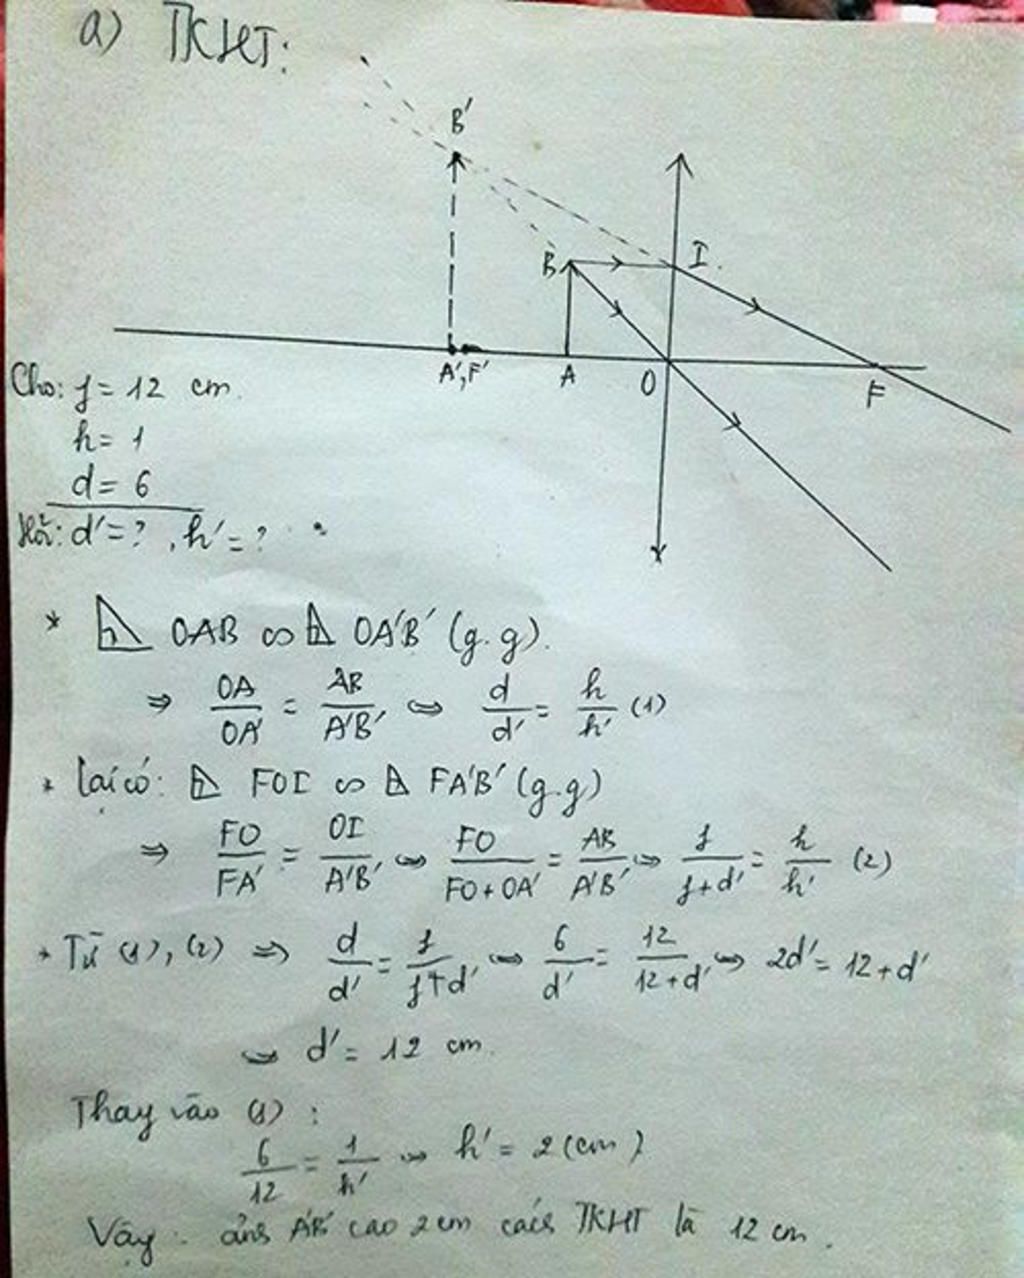 a) TKHT:
B'
B I.
A', F' A O F
Cho: f = 12 cm.
h = 1
d = 6
Hỏi: d' = ? , h' = ?
* OAB ∽ OA'B' (g.g).
⇒ OA/OA' = AB/A'B' ⇔ d/d' = h/h' (1)
* Lại có: FOI ∽ FA'B' (g.g)
⇒ FO/FA' = OI/A'B' ⇔ FO/FO+OA' = AB/A'B' ⇔ f/f+d' = h/h' (2)
* Từ (1), (2) ⇒ d/d' = f/f+d' ⇔ 6/d' = 12/12+d' ⇔ 2d' = 12+d'
⇔ d' = 12 cm.
Thay vào (1) :
6/12 = 1/h' ⇔ h' = 2 (cm)
Vậy : ảnh A'B' cao 2 cm cách TKHT là 12 cm.